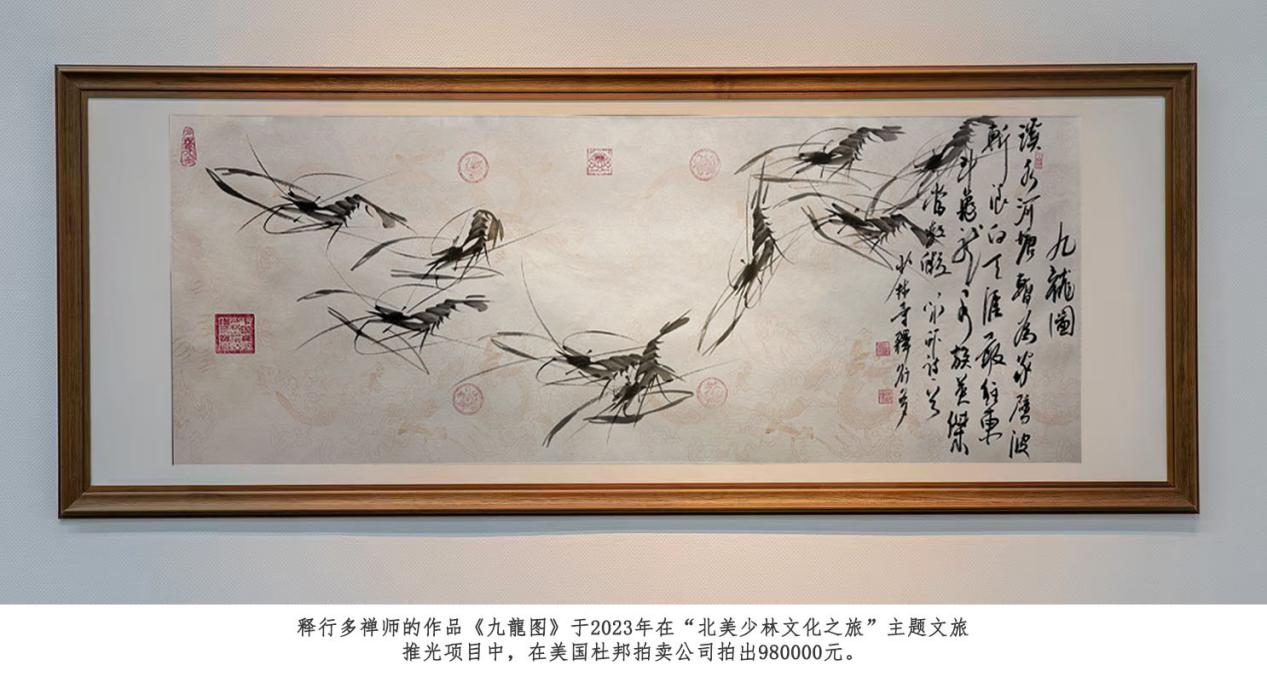 九龍圖
河塘暫為家劈波
斬浪向天涯敢往東
龍水族英傑
當數蝦
少林寺釋行多
释行多禅师的作品《九龍图》于2023年在“北美少林文化之旅”主题文旅
推光项目中，在美国杜邦拍卖公司拍出980000元。